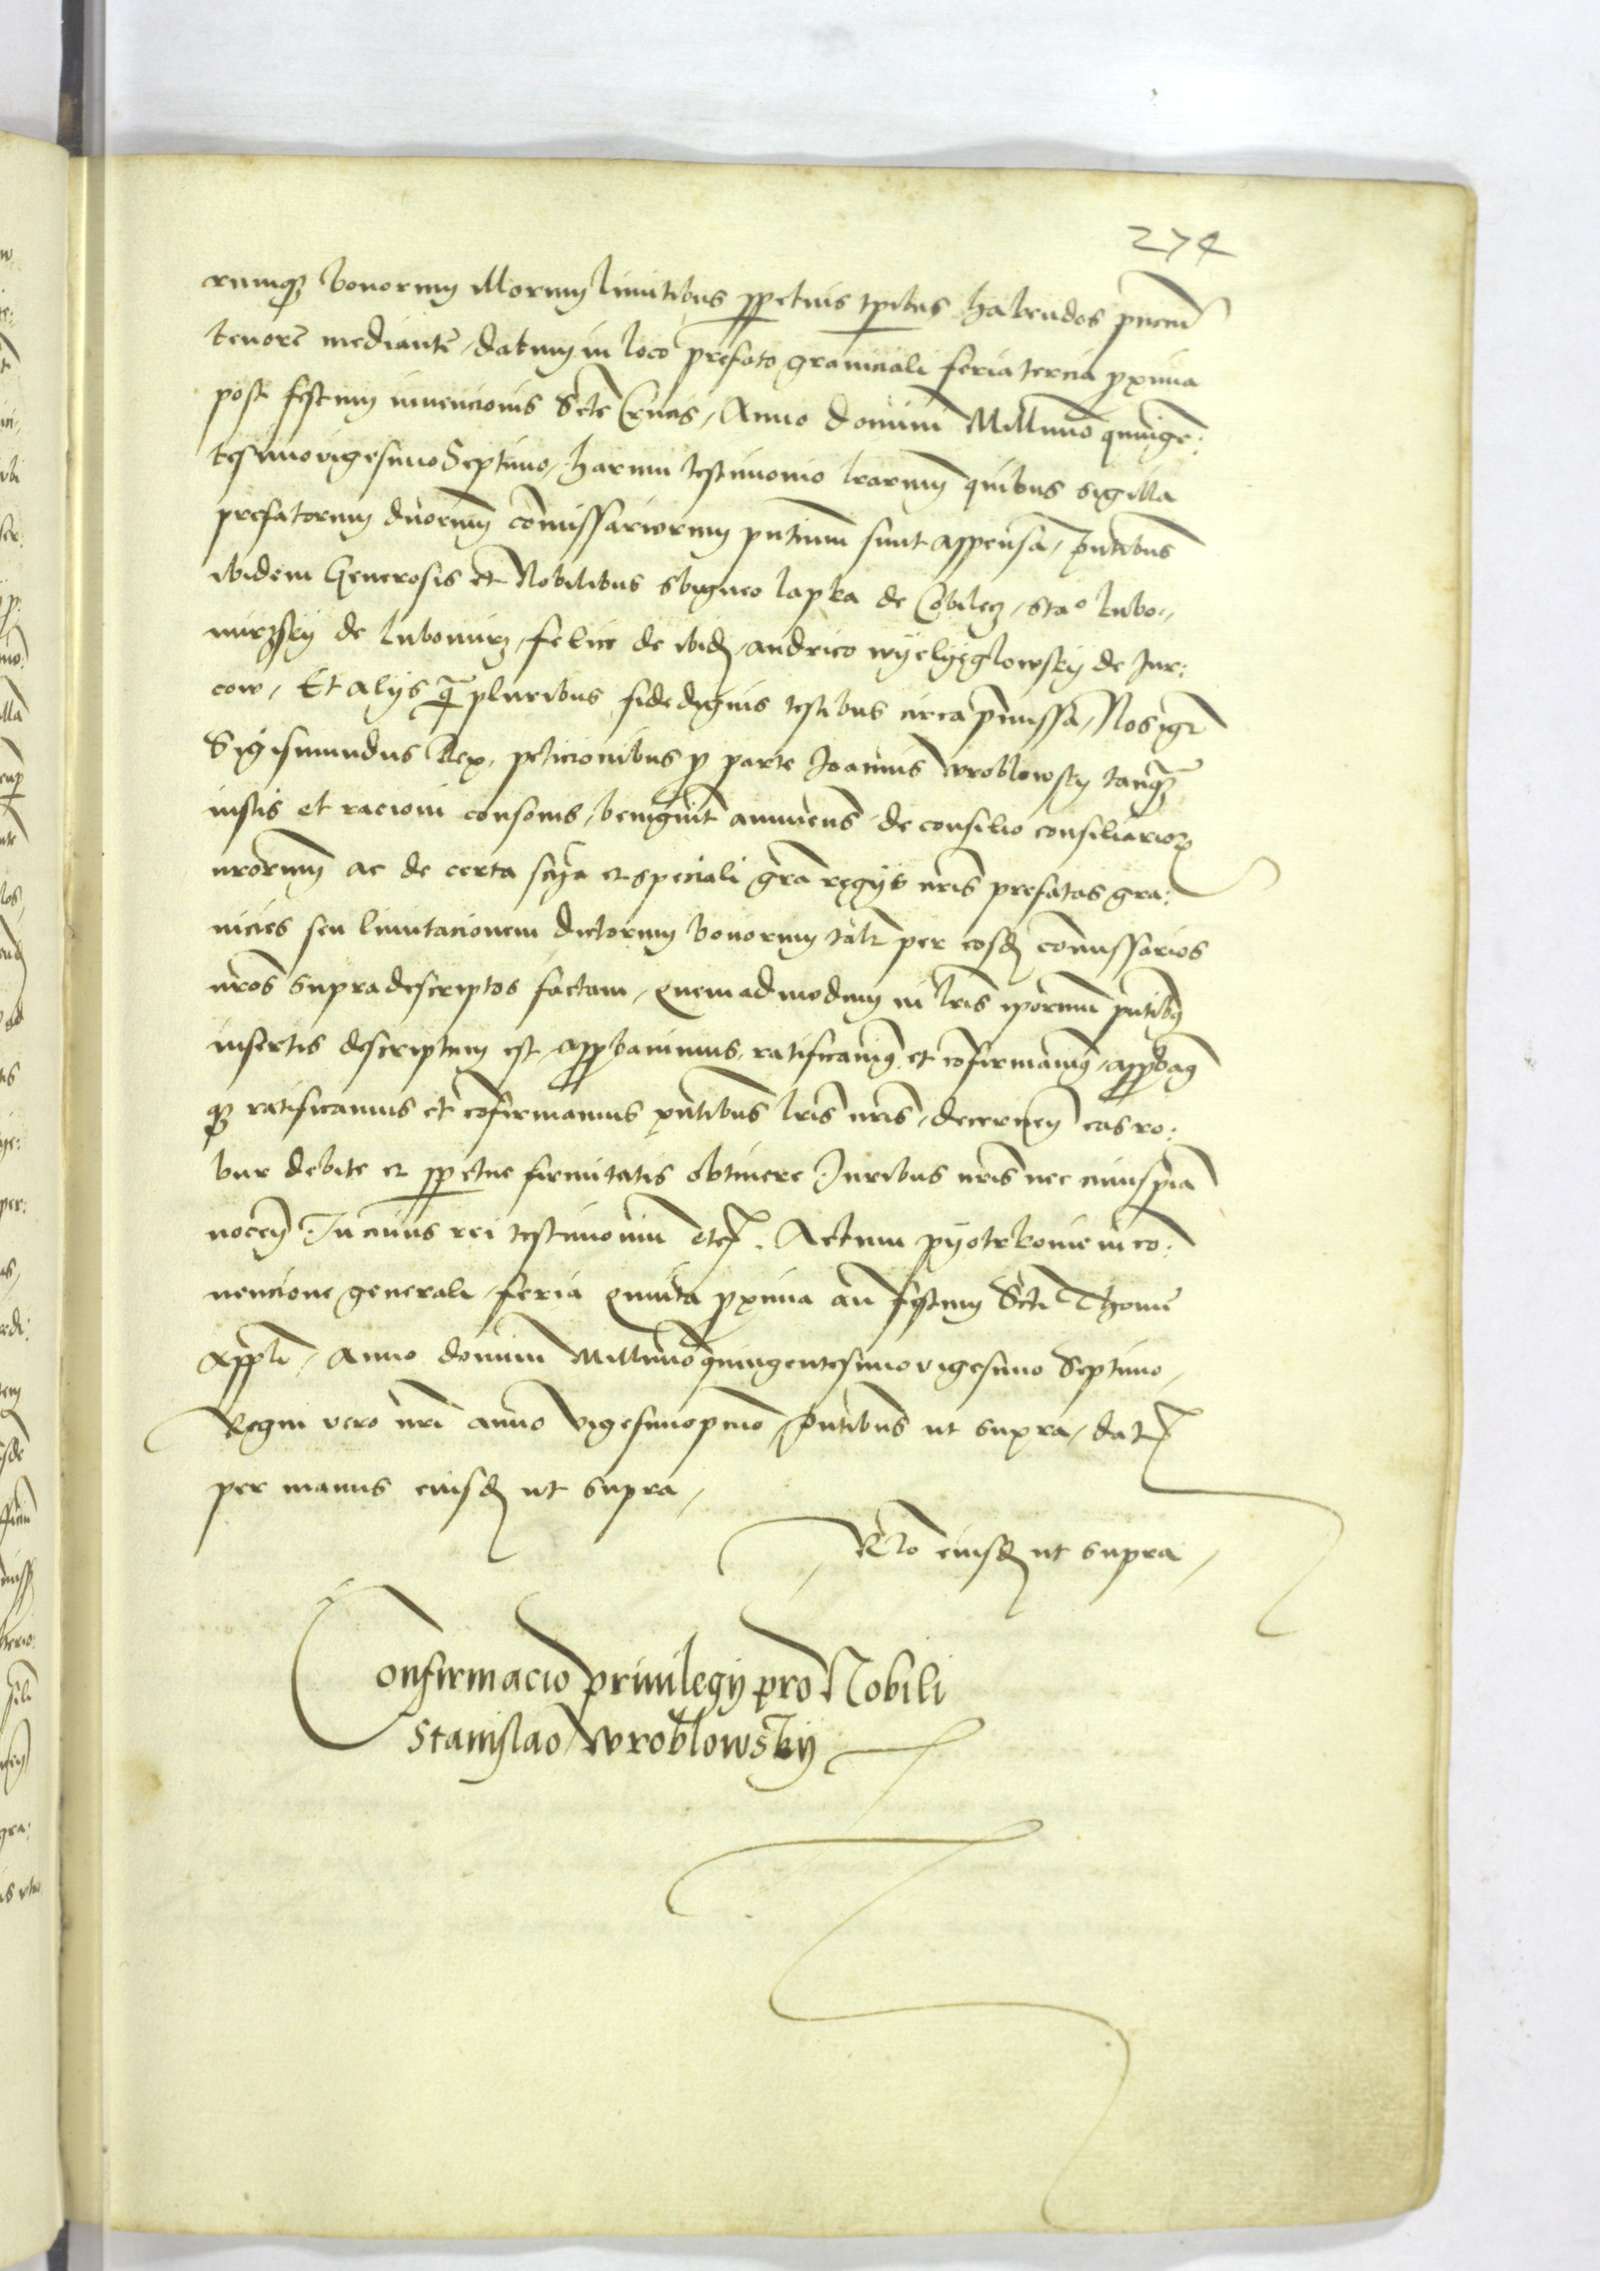 274
rumq3 bonorum illorum limitibus ppetuis tpibus habendos pntem
tenore mediante, datum in loco prefato graniciali feria tercia pxima
post festum invencionis Scte Crucis, Anno domini Millimo quinge:
tesimovigesimo Septimo, harum testimonio lrarum quibus sigilla
prefatorum duorum comissariorum pntium sunt appensa, pntibus
ibidem Generosis et Nobilibus Sbigneo lapka de Cobilecz, Stao lubo:
mirzsky de lubomirz, felice de ibid, andrico wyelyeglowsky de Jur:
cow, Et alys q pluribus fidedignis testibus circa pmissa, Nos igr
Sigismundus Rex, peticionibus p parte Joannis wroblowsky tanq3
iustis et racioni consonis, benignit annuens de consilio consiliarior
nrorum ac de certa scia et speciali gra regys nris prefatas gra:
nicies seu limitacionem dictorum bonorum talr per eosd comissarios
nros supradescriptos factam, quemadmodum in lris iporum pntib9
insertis descriptum est appbavimus, ratificavim9 et cofirmavim9, appbam9
q3 ratificamus et cofirmamus pntibus lris nris, decernen eas ro:
bur debite et ppetue firmitatis obtinere Juribus nris nec cuiuspia
nocen. In cuius rei testimonium etc. Actum pyotrkovie in co:
vencione generali feria quinta pxima an festum Scti Thome
Appli, Anno domini Millimo quingentesimovigesimo Septimo,
Regni vero nri anno vigesimopmo, pntibus ut supra, dat
per manus eiusd ut supra,
Rlo eiusd ut supra,
Confirmacio privilegy pro Nobili
Stanislao wroblowsky